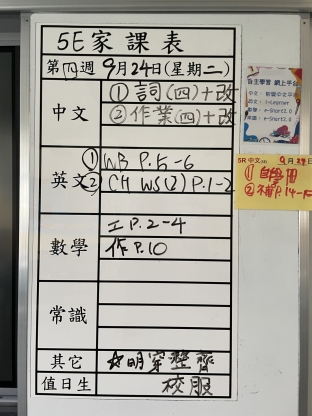 5E家課表
第四週 9月24日(星期二)
中文
①詞(四)+改
②作業(四)+改
英文
①WB P.5-6
②CH WS(2) P.1-2
數學
工P.2-4
作P.10
常識
其它
☆明穿整齊
值日生
校服
自主學習 網上平台
5R 中文
①自學冊
②補P.14-15